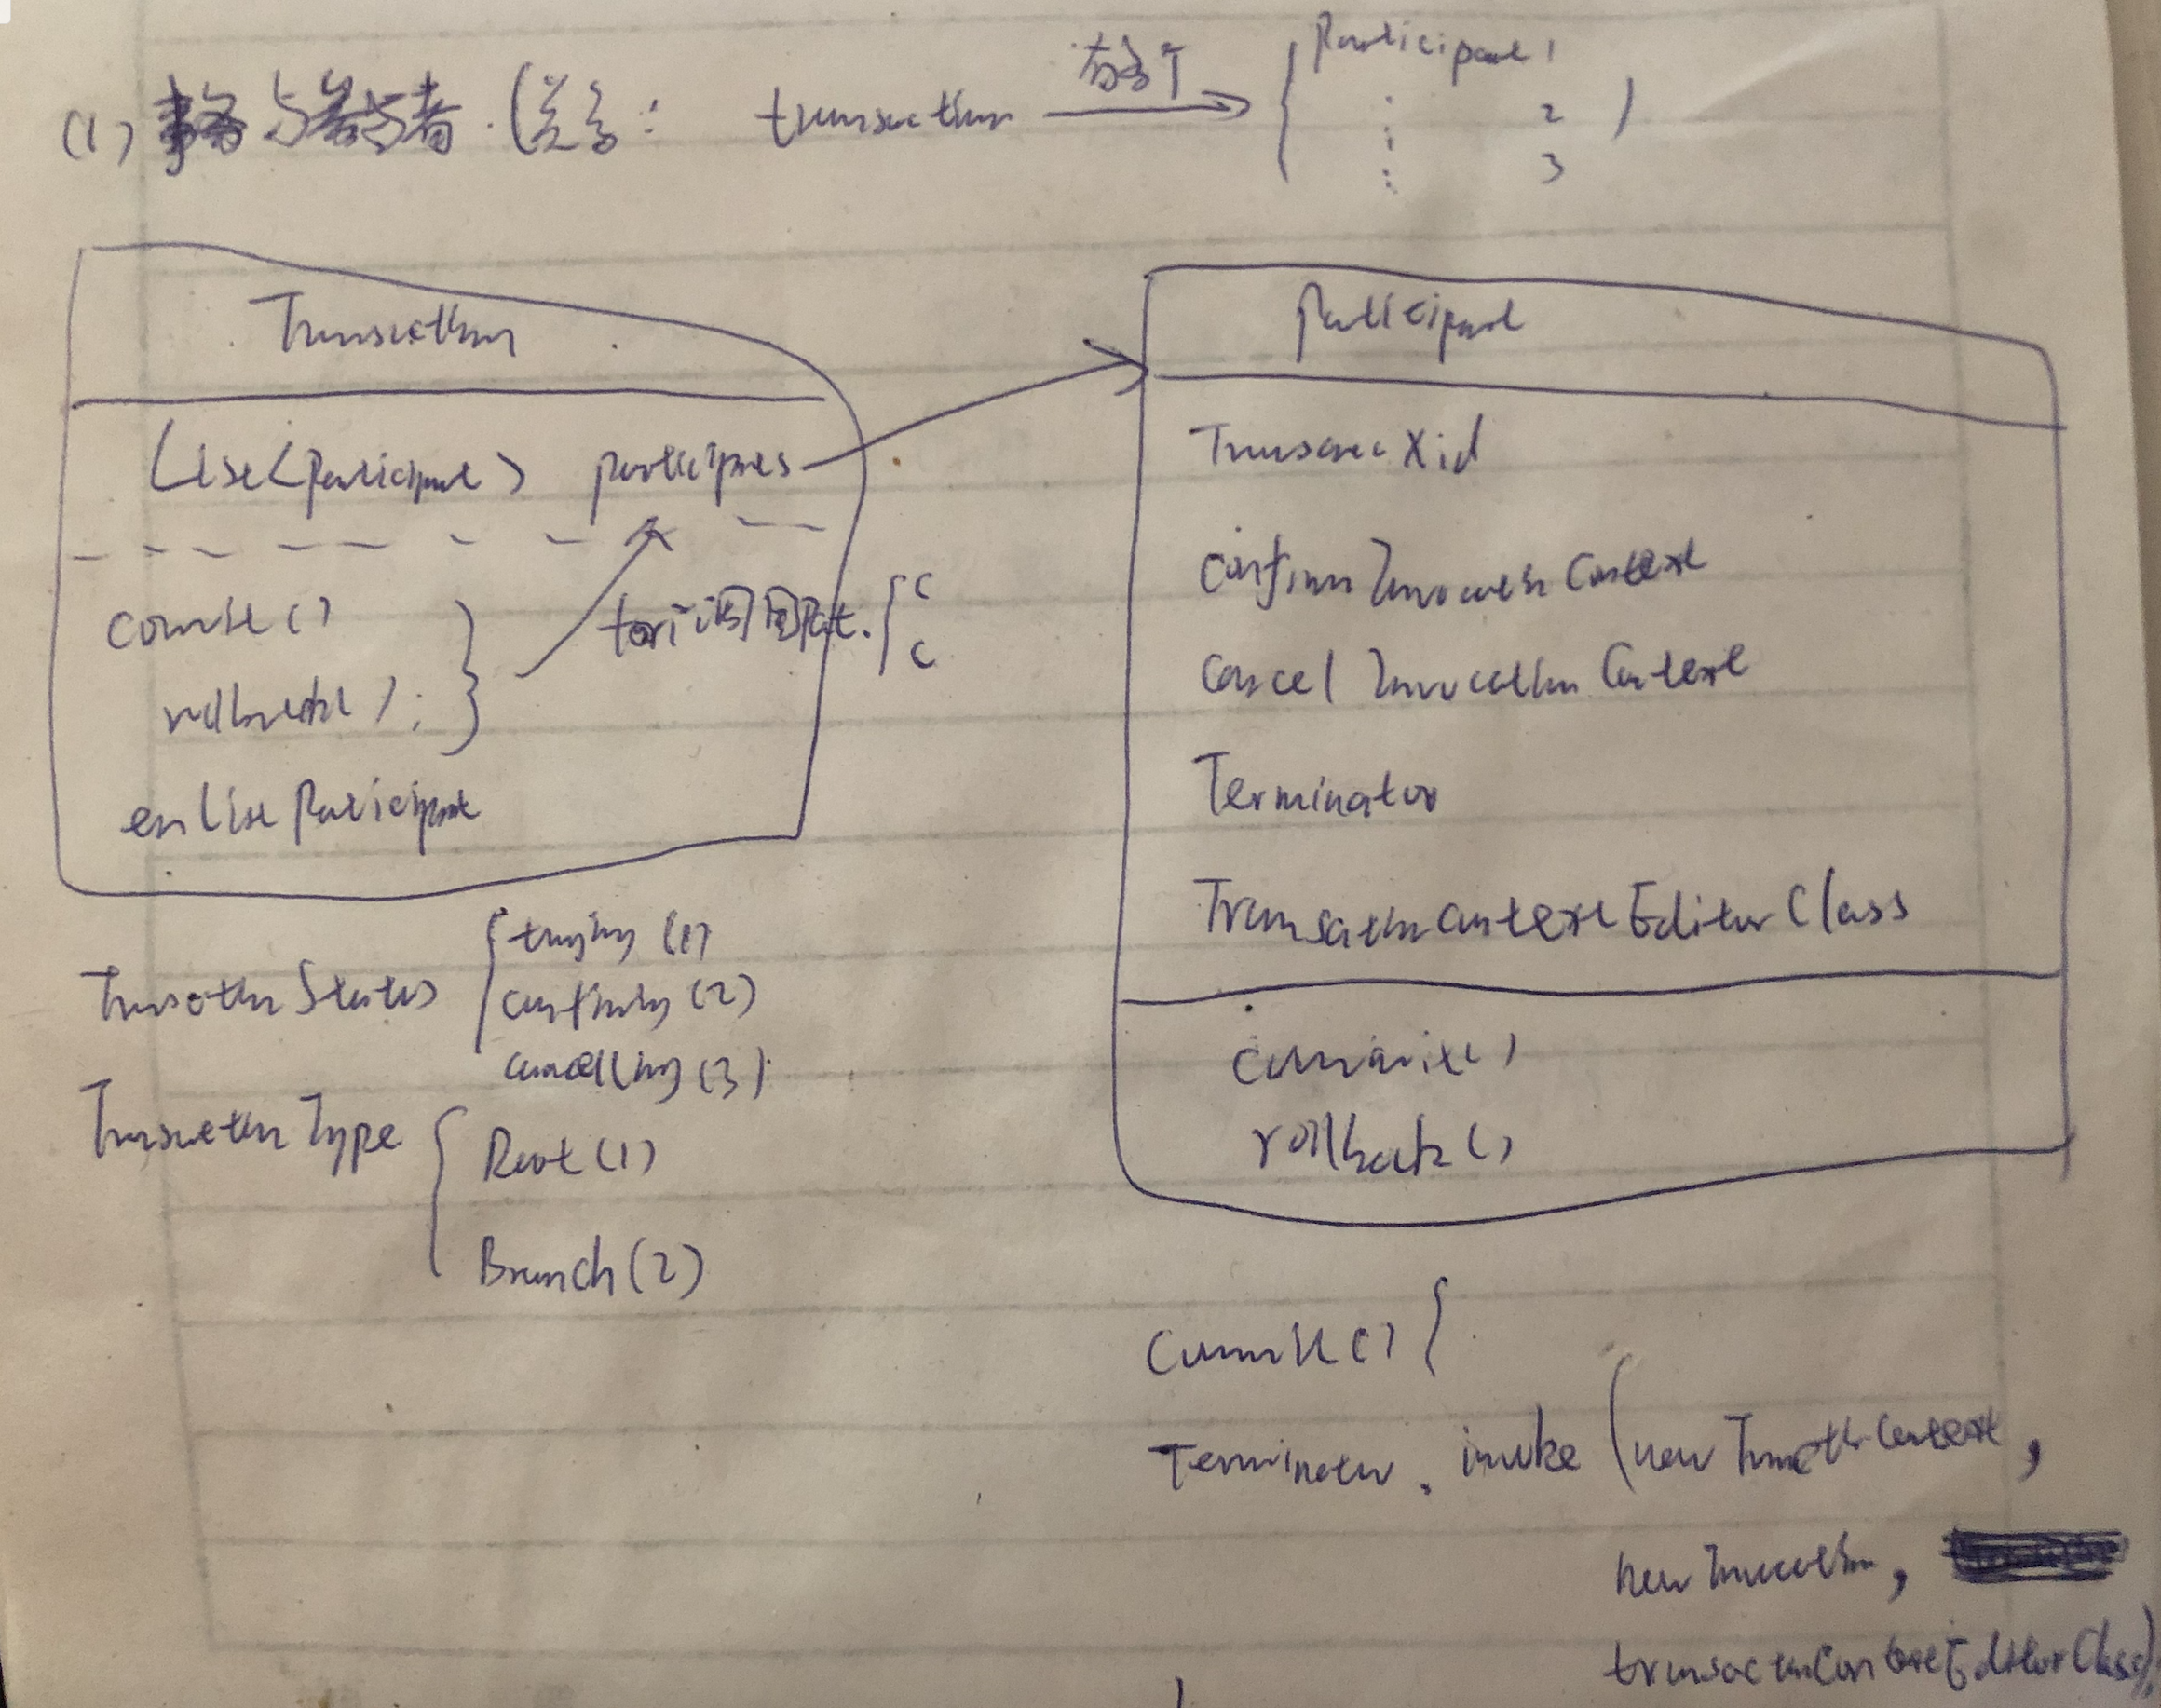 (1) 事务与参与者. (关系: transaction 有多个 { Participant 1
2 )
3
Transaction
List<Participant> participants
commit()
rollback();
for 调用 Part. { C
C
enlist Participant
Participant
Transaction Xid
confirm Invocation Context
cancel Invocation Context
Terminator
Transaction context Editor Class
commit()
rollback()
Transaction Status { trying (1)
confirming (2)
cancelling (3)
Transaction Type { Root (1)
Branch (2)
Commit() {
Terminator. invoke (new Transaction Context,
new Invocation,
transaction Context Editor Class);
}